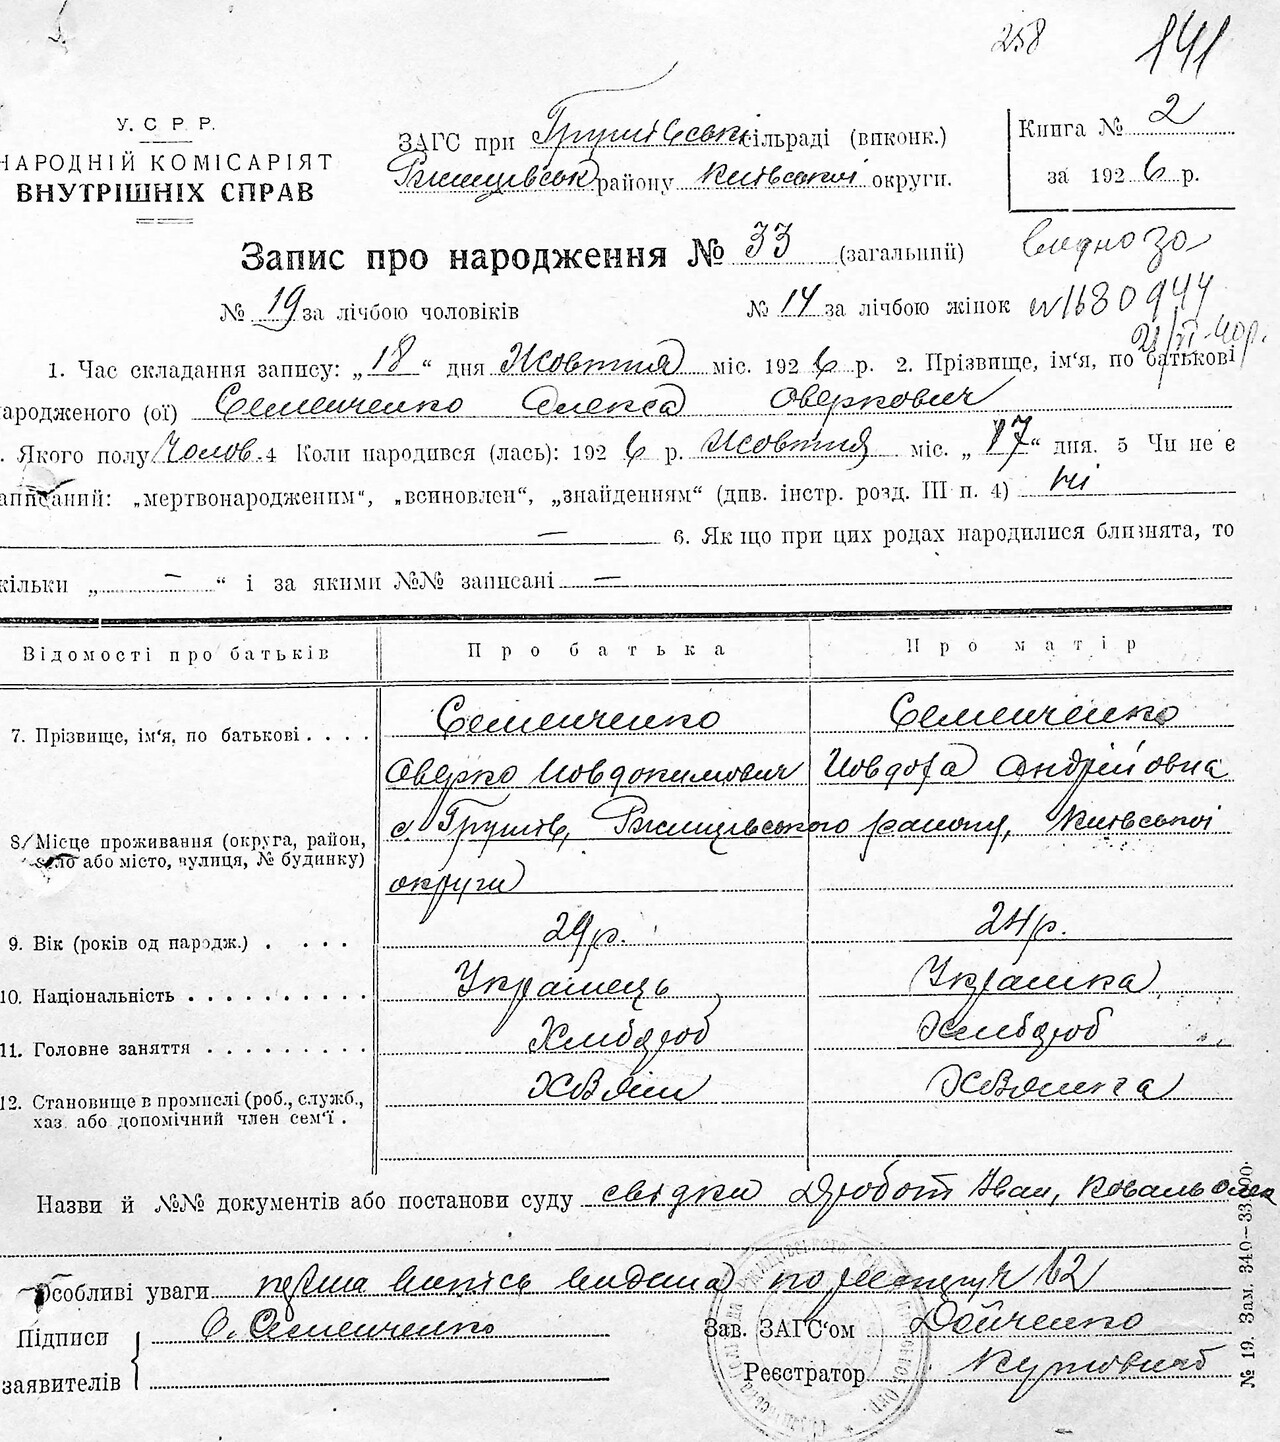 258 141
У. С Р Р.
НАРОДНІЙ КОМІСАРІЯТ
ВНУТРІШНІХ СПРАВ
ЗАГС при Грушівській сільраді (виконк.)
Ржищівськ району Київської округи.
Книга № 2
за 1926 р.
Запис про народження № 33 (загальний)
видно за
№ 19 за лічбою чоловіків № 14 за лічбою жінок
№ 1680944
21/VI 40р.
1. Час складання запису: „18“ дня Жовтня міс. 1926 р. 2. Прізвище, ім‘я, по батькові
народженого (ої) Семенченко Олекса Оверкович
. Якого полу Чолов. 4 Коли народився (лась): 1926 р. Жовтня міс. „17“ дня. 5 Чи не є
записаний: „мертвонародженим“, „всиновлен“, „знайденням“ (див. інстр. розд. III п. 4) ні
— 6. Якщо при цих родах народилися близнята, то
кільки „ — “ і за якими №№ записані —
Відомості про батьків Про батька Про матір
7. Прізвище, ім‘я, по батькові . . . . Семенченко Семенченко
Оверко Йовдокимович Йовдоха Андрійовна
8/ Місце проживання (округа, район,
село або місто, вулиця, № будинку)
с. Грушів, Ржищівського району, Київської
округи
9. Вік (років од народж.) . . . . 29 р. 24 р.
10. Національність . . . . . . . . . . Українець Українка
11. Головне заняття . . . . . . . . . Хлібороб Хлібороб
12. Становище в промислі (роб., служб.,
хаз або допомічний член сем‘ї .
Хазяїн Хазяйка
Назви й №№ документів або постанови суду свідки Дзюбот Іван, Коваль Олек
Особливі уваги перша випись видана по реєстру 62
Підписи
заявителів
О. Семенченко
Зав. ЗАГС‘ом Дойченко
Реєстратор
№ 19. Зам. 340—33000.